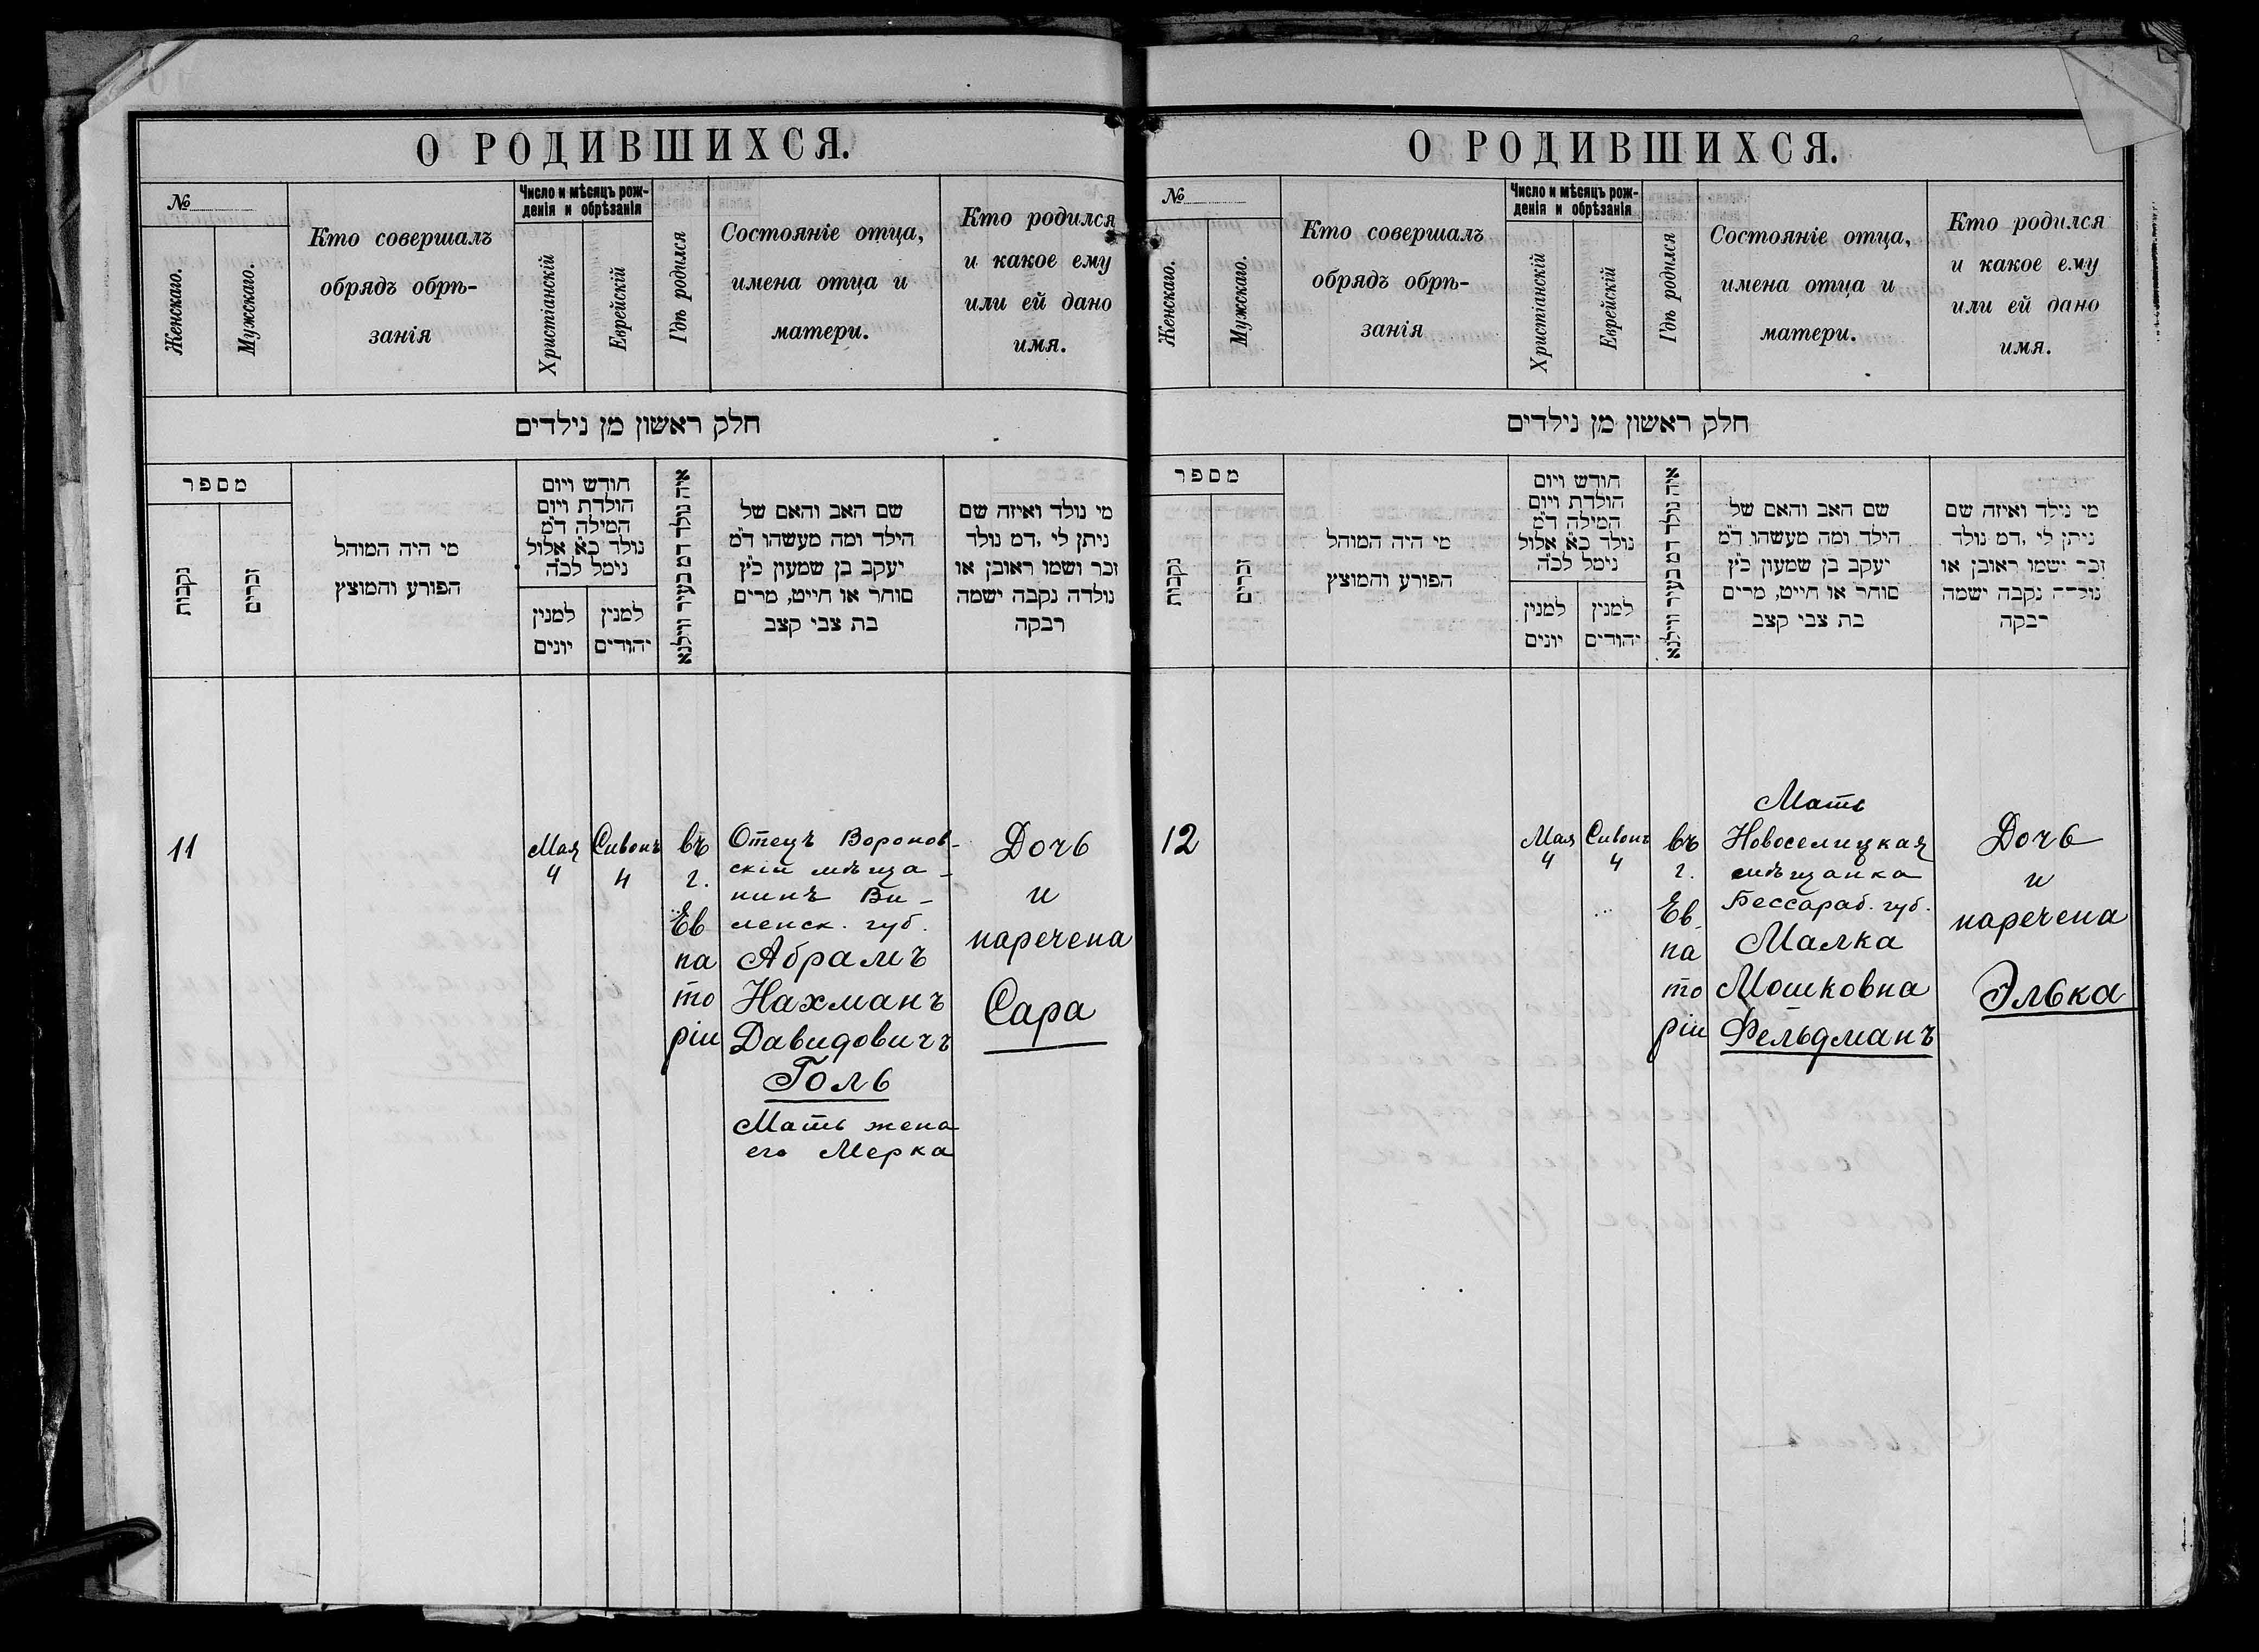 О РОДИВШИХСЯ.
№
Женскаго.
Мужскаго.
Кто совершалъ
обрядъ обрѣ-
занія
Число и мѣсяцъ рож-
денія и обрѣзанія
Христіанскій
Еврейскій
Гдѣ родился
Состояніе отца,
имена отца и
матери.
Кто родился
и какое ему
или ей дано
имя.
חלק ראשון מן נילדים
מספר
נקבות
זכרים
מי היה המוהל
הפורע והמוצץ
חודש ויום
הולדת ויום
המילה ד״מ
נולד כ״א אלול
נימל לכ״ה
למנין
יונים
למנין
יהודים
איה נולד דמ בעיר ווילנא
שם האב והאם של
הילד ומה מעשהו ד״מ
יעקב בן שמעון כ״ץ
סוחר או חייט, מרים
בת צבי קצב
מי נולד ואיזה שם
ניתן לי ,דמ נולד
זכר ושמו ראובן או
נולדה נקבה ישמה
רבקה
11
Мая
4
Сивонъ
4
въ
г.
Ев
па
то
ріи
Отецъ Воронов-
скій мѣща-
нинъ Ви-
ленск. губ.
Абрамъ
Нахманъ
Давидовичъ
Голь
Мать жена
его Мерка
Дочь
и
наречена
Сара
О РОДИВШИХСЯ.
№
Женскаго.
Мужскаго.
Кто совершалъ
обрядъ обрѣ-
занія
Число и мѣсяцъ рож-
денія и обрѣзанія
Христіанскій
Еврейскій
Гдѣ родился
Состояніе отца,
имена отца и
матери.
Кто родился
и какое ему
или ей дано
имя.
חלק ראשון מן נילדים
מספר
נקבות
זכרים
מי היה המוהל
הפורע והמוצץ
חודש ויום
הולדת ויום
המילה ד״מ
נולד כ״א אלול
נימל לכ״ה
למנין
יונים
למנין
יהודים
איה נולד דמ בעיר ווילנא
שם האב והאם של
הילד ומה מעשהו ד״מ
יעקב בן שמעון כ״ץ
סוחר או חייט, מרים
בת צבי קצב
מי נילד ואיזה שם
ניתן לי ,דמ נולד
זכר ישמו ראובן או
נולדה נקבה ישמה
רבקה
12
Мая
4
Сивонъ
4
въ
г.
Ев-
па
то
ріи
Мать
Новоселицкая
мѣщанка
Бессараб. губ.
Малка
Мошковна
Фельдманъ
Дочь
и
наречена
Элька